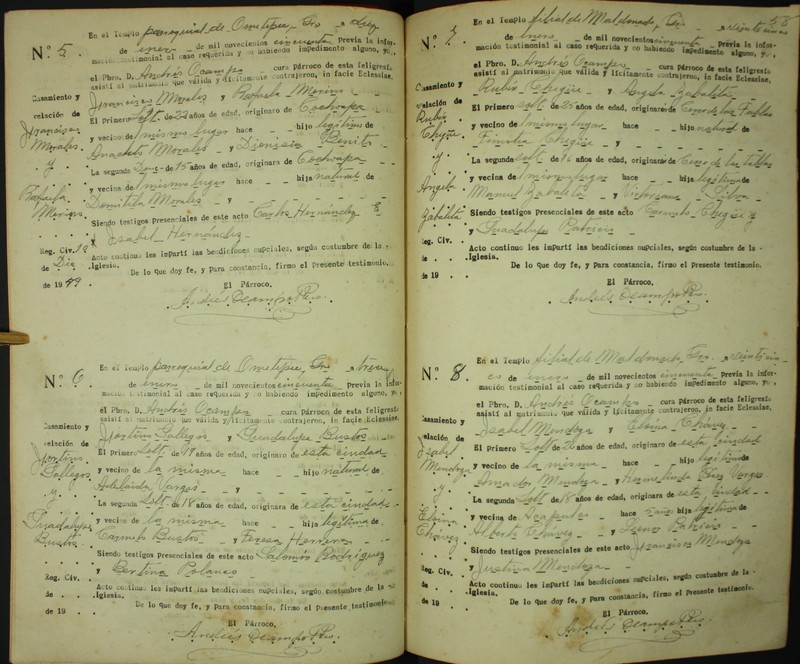 Nº 5.
En el Templo parroquial de Ometepec, Gro. a diez
de enero de mil novecientos cincuenta Previa la infor-
mación testimonial al caso requerida y no habiendo impedimento alguno, yo,
el Pbro. D. Andrés Ocampo cura Párroco de esta feligresía
asistí al matrimonio que válida y lícitamente contrajeron, in facie Eclessiae,
Casamiento y
Francisco Morales y Rafaela Merino
velación de
El Primero Solt. de 22 años de edad, originaro de Cochoapa
Francisco
y vecino de l mismo lugar hace - hijo legítimo de
Morales.
Anacleto Morales y Dionisia Benita
y
La segunda Donc. de 15 años de edad, originara de Cochoapa
Rafaela
y vecina de l mismo lugar hace - hija natural de
Merino
Domitila Morales y
Siendo testigos Presenciales de este acto Carlos Hernández
y Isabel Hernández
Reg. Civ.
Acto continuo les impartí las bendiciones nupciales, según costumbre de la
de Dic.
Iglesia.
De lo que doy fe, y Para constancia, firmo el Presente testimonio.
de 1949.
El Párroco,
Andrés Ocampo Pbro.
Nº 6.
En el Templo parroquial de Ometepec, Gro. a trece
de enero de mil novecientos cincuenta Previa la infor-
mación testimonial al caso requerida y no habiendo impedimento alguno, yo,
el Pbro. D. Andrés Ocampo cura Párroco de esta feligresía
asistí al matrimonio que válida y lícitamente contrajeron, in facie Eclessiae,
Casamiento y
Fortino Gallegos y Guadalupe Bustos
velación de
El Primero Solt. de 19 años de edad, originaro de esta ciudad
Fortino
Gallegos
y vecino de la misma hace - hijo natural de
Adelaida Vargas y
y
La segunda Solt. de 18 años de edad, originara de esta ciudad
Guadalupe
y vecina de la misma hace - hija legítima de
Bustos
Carmelo Bustos y Teresa Herrera
Siendo testigos Presenciales de este acto Salomón Rodríguez
y Bertina Polanco
Reg. Civ.
Acto continuo les impartí las bendiciones nupciales, según costumbre de la
de
Iglesia.
De lo que doy fe, y Para constancia, firmo el Presente testimonio.
de 19
El Párroco,
Andrés Ocampo Pbro.
58
Nº 7.
En el Templo filial de Maldonado, Gro. a veinticinco
de enero de mil novecientos cincuenta Previa la infor-
mación testimonial al caso requerida y no habiendo impedimento alguno, yo,
el Pbro. D. Andrés Ocampo cura Párroco de esta feligresía
asistí al matrimonio que válida y lícitamente contrajeron, in facie Eclessiae,
Casamiento y
Rubín Chegüe y Angela Zabaleta
velación de
El Primero Solt. de 25 años de edad, originaro de Cerro de las Tablas
Rubín
Chegüe.
y vecino de l mismo lugar hace - hijo natural de
Chegüe y
y
La segunda Solt. de 16 años de edad, originara de Cerro de las Tablas
Angela
y vecina de l mismo lugar hace - hija legítima de
Zabaleta
Manuel Zabaleta y Victoriana Silva
Siendo testigos Presenciales de este acto Carmelo Chegüe
y Guadalupe Patricio
Reg. Civ.
Acto continuo les impartí las bendiciones nupciales, según costumbre de la
de
Iglesia.
De lo que doy fe, y Para constancia, firmo el Presente testimonio.
de 19
El Párroco,
Andrés Ocampo Pbro.
Nº 8.
En el Templo filial de Maldonado Gro. a veintisin-
co de enero de mil novecientos cincuenta Previa la infor-
mación testimonial al caso requerida y no habiendo impedimento alguno, yo,
el Pbro. D. Andrés Ocampo cura Párroco de esta feligresía
asistí al matrimonio que válida y lícitamente contrajeron, in facie Eclessiae,
Casamiento y
Isabel Mendoza y Elvina Chávez
velación de
El Primero Solt. de años de edad, originaro de esta ciudad
Isabel
Mendoza
y vecino de la misma hace - hijo legítimo de
Amador Mendoza y Vargas
y
La segunda Solt. de 18 años de edad, originara de esta ciudad
Elvina
y vecina de Acapulco hace años hija legítima de
Chávez
Alberto Chávez y Patricio
Siendo testigos Presenciales de este acto Francisco Mendoza
y Mendoza
Reg. Civ.
Acto continuo les impartí las bendiciones nupciales, según costumbre de la
de
Iglesia.
De lo que doy fe, y Para constancia, firmo el Presente testimonio.
de 19
El Párroco,
Andrés Ocampo Pbro.